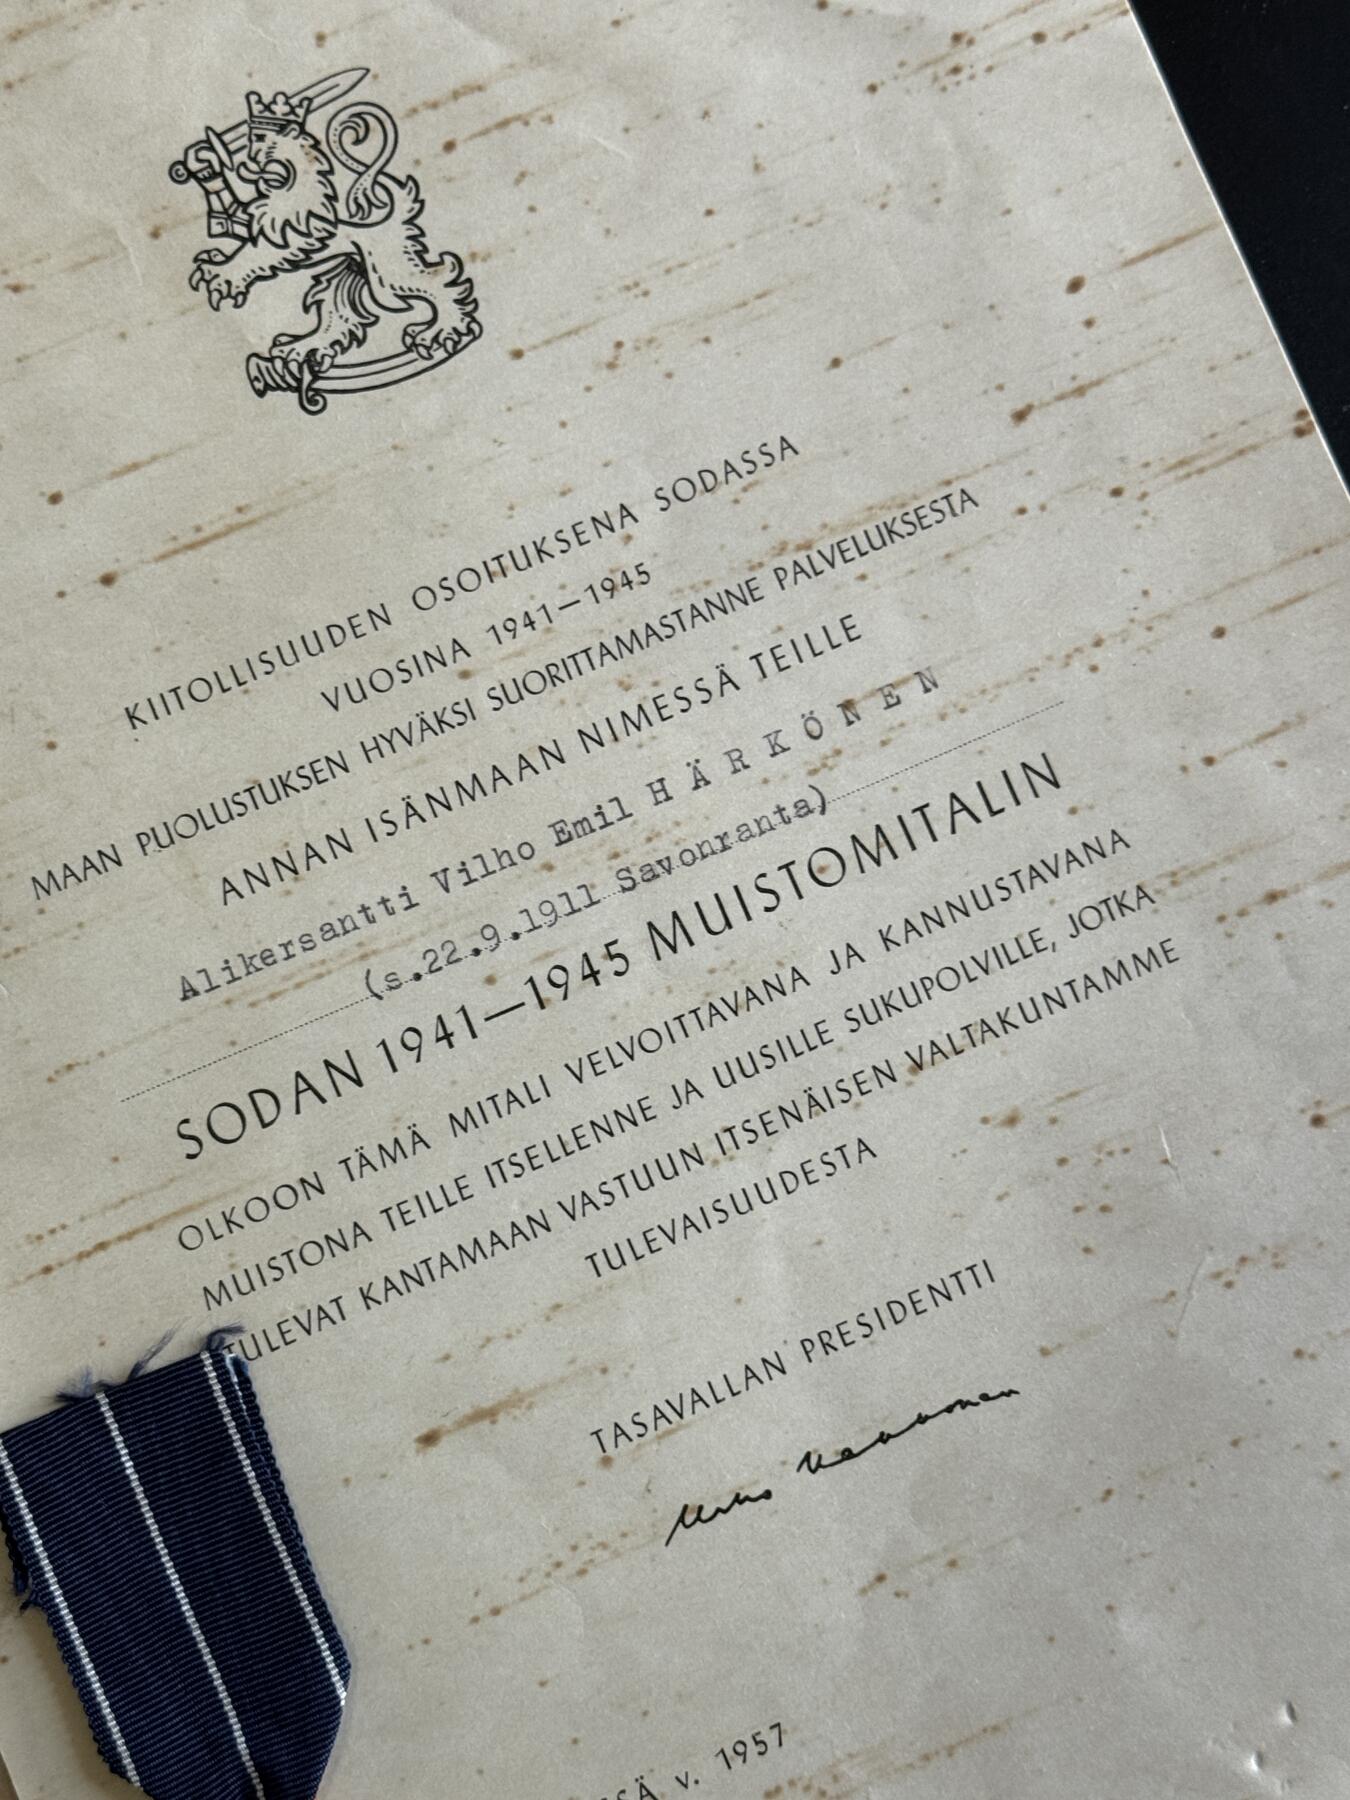 KIITOLLISUUDEN OSOITUKSENA SODASSA
VUOSINA 1941—1945
MAAN PUOLUSTUKSEN HYVÄKSI SUORITTAMASTANNE PALVELUKSESTA
ANNAN ISÄNMAAN NIMESSÄ TEILLE
Alikersantti Vilho Emil H Ä R K Ö N E N
(s.22.9.1911 Savonranta)
SODAN 1941—1945 MUISTOMITALIN
OLKOON TÄMÄ MITALI VELVOITTAVANA JA KANNUSTAVANA
MUISTONA TEILLE ITSELLENNE JA UUSILLE SUKUPOLVILLE, JOTKA
TULEVAT KANTAMAAN VASTUUN ITSENÄISEN VALTAKUNTAMME
TULEVAISUUDESTA
TASAVALLAN PRESIDENTTI
Urho Kekkonen
v. 1957